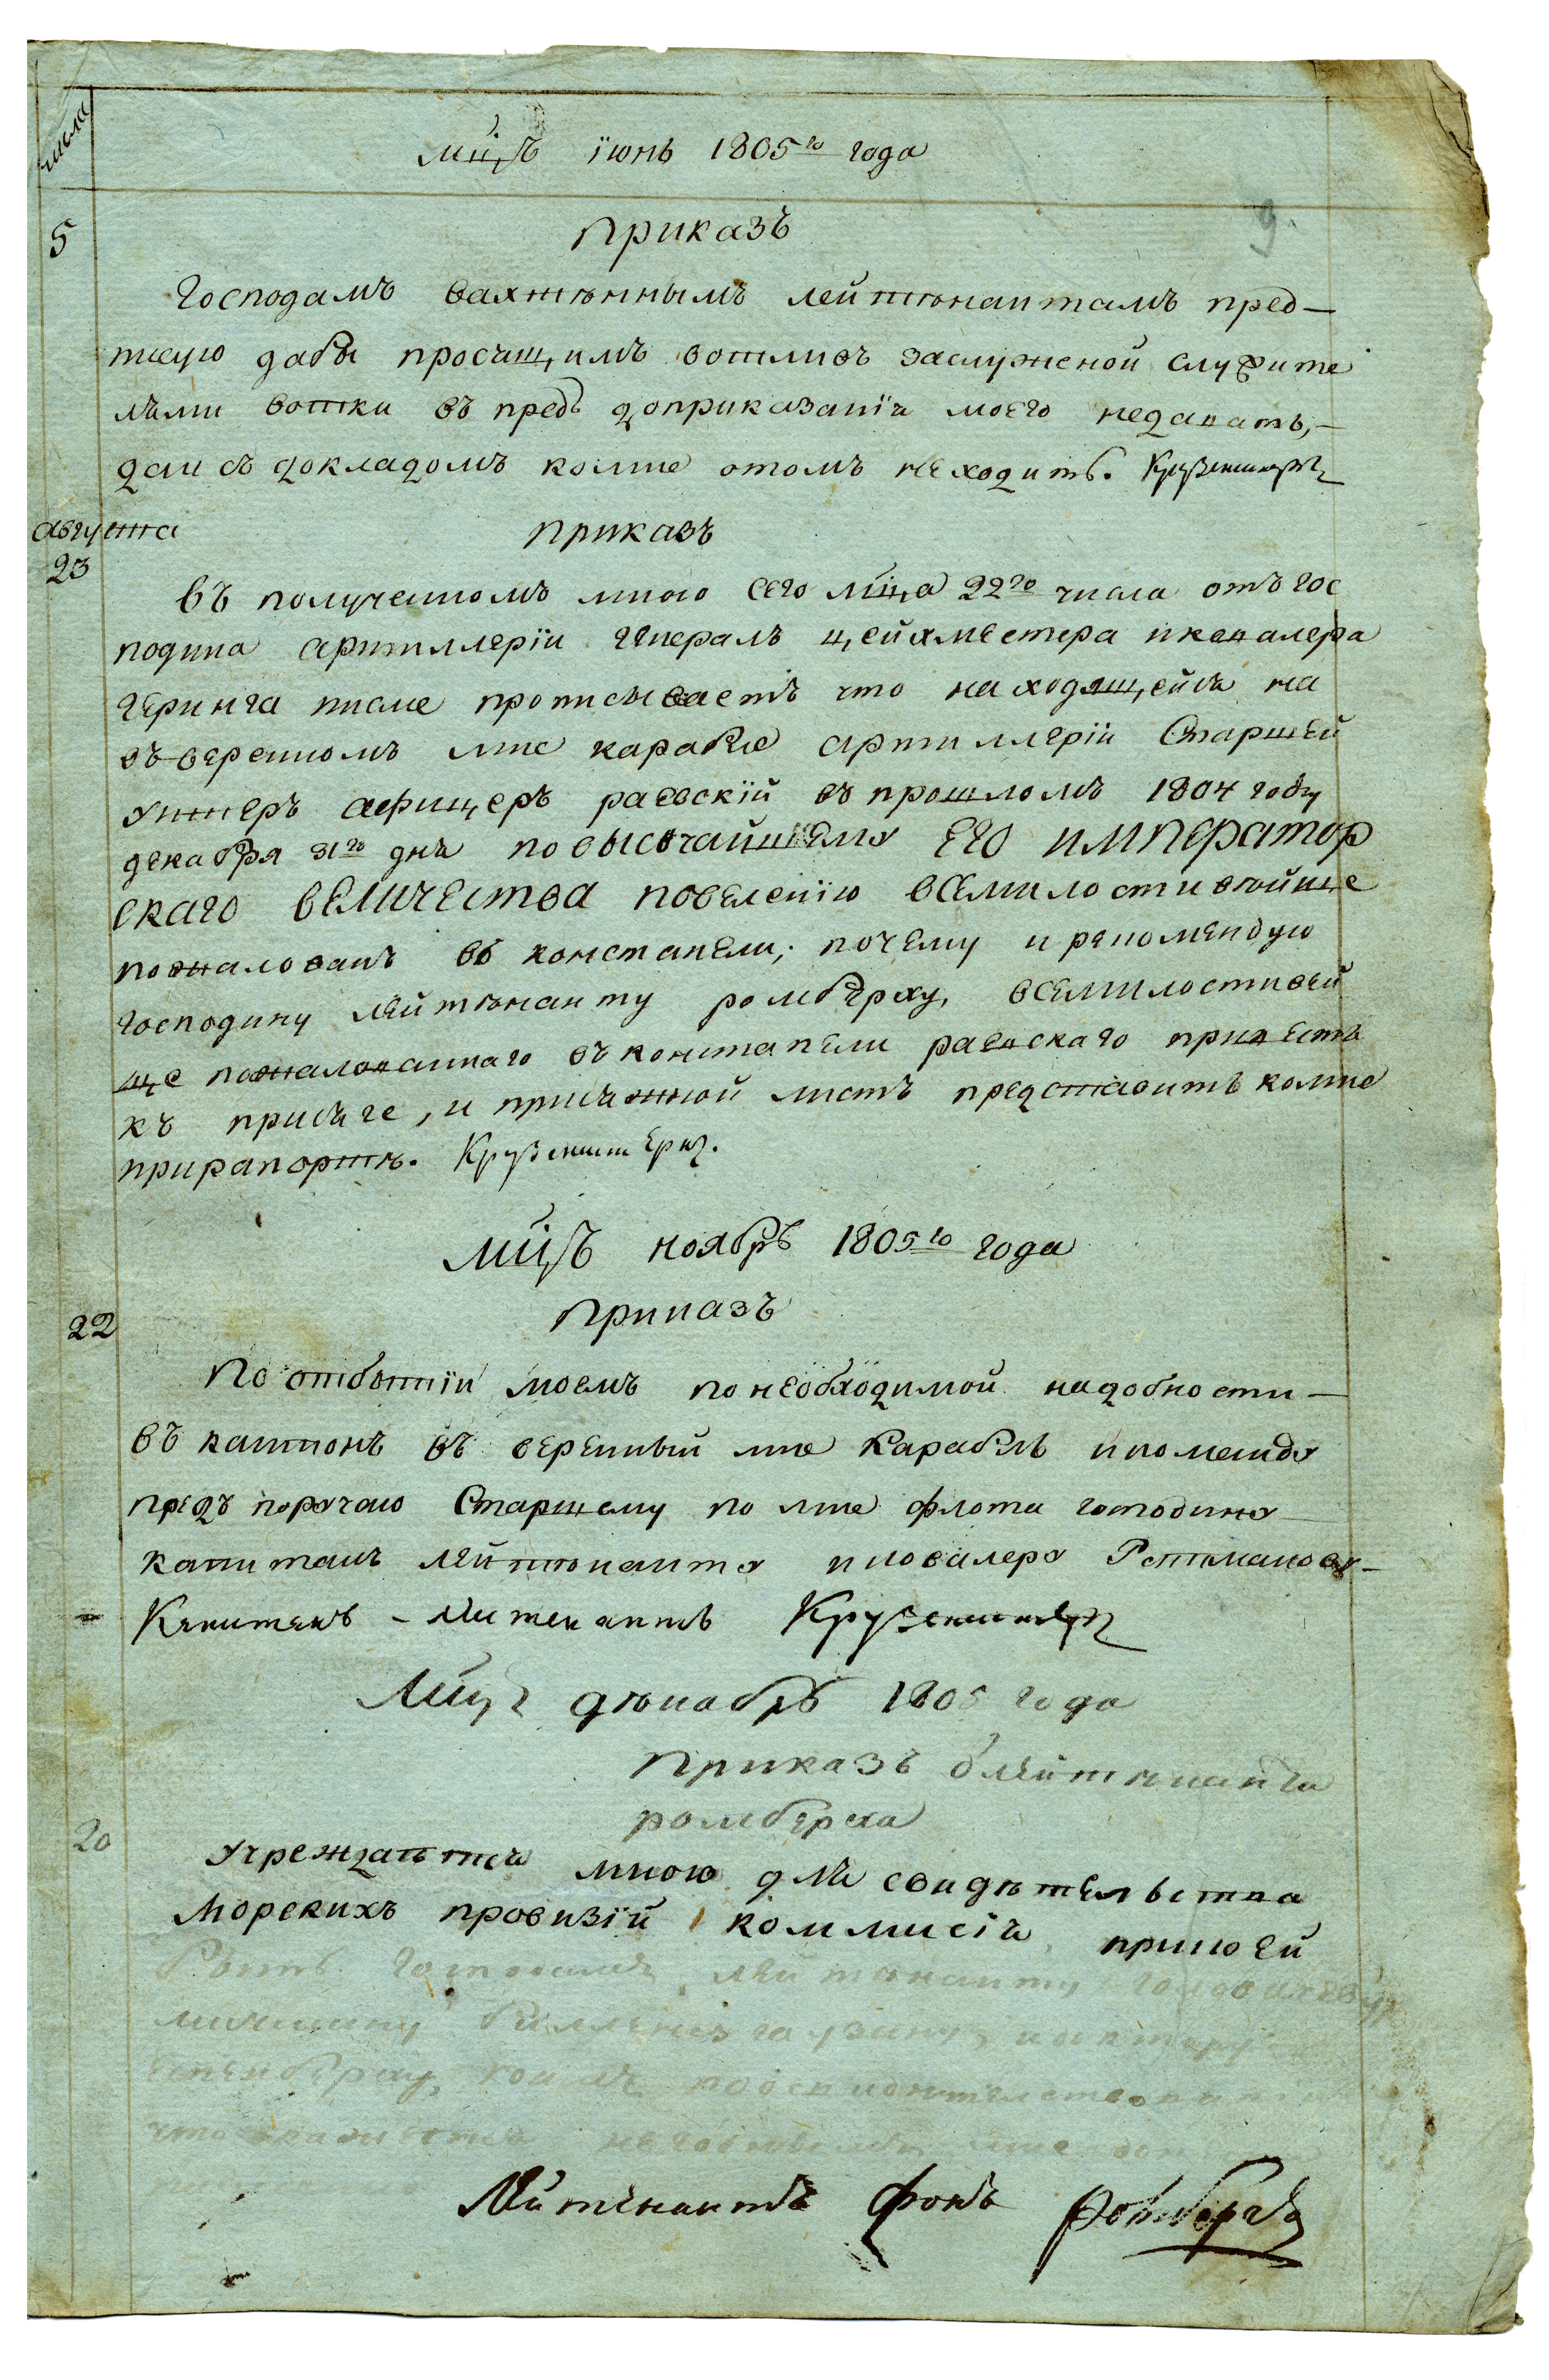 числа
мцъ іюнь 1805го года
9.
5
приказъ
Господамъ вахтеннымъ лейтѣнантамъ пред—
писую дабы просящимъ вотливъ заслуженой служите
лями вотки въ предь доприказанія моего недавать,—
даи съ докладомъ комне отомъ неходить. Крузенштернъ
августа
23
приказъ
въ полученномъ мною сего мца 22го числа отъ гос
подина артиллеріи генералъ цейхместера икавалера
геринга писме прописываетъ что находящейся на
въверенномъ мне карабле артиллеріи старшей
унтеръ афицеръ раевскій въ прошломъ 1804 году
декабря 31го дня повысочайшему его император
скаго величества повелению всемилостивѣйше
пожалованъ въ констапели; почему и рекомендую
господину лейтѣнанту ромберху, всемилостивей
ще пожалованнаго въ констапели раевскаго привесть
къ присяге, и присяжной листъ представить комне
прирапортѣ. Крузенштернъ.
мцъ ноябрь 1805го года
22
приказъ
По отбытіи моемъ понеобходимой надобности—
въ кантонъ въ веренный мне карабль и команду
предъ поручаю старшему по мне флота господину
капитанъ лейтѣнанту и ковалеру Ратманову—
Капитанъ-Литенантъ Крузенштернъ
мцъ дѣкабрь 1805 года
приказъ ѿ лейтѣнанта
ромберха
20
учреждаится мною для свидѣтельства
морскихъ провизій коммисія, при коей
быть господамъ лейтѣнанту головачеву,
мичману биллензгаузину, и доктору
еспенбергу, коимъ
что
Лейтенантъ фонъ Ромбергъ